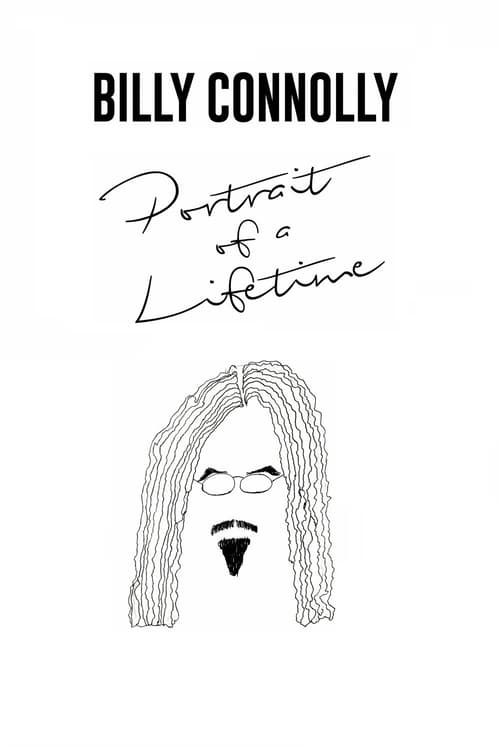 BILLY CONNOLLY
Portrait
of a
Lifetime